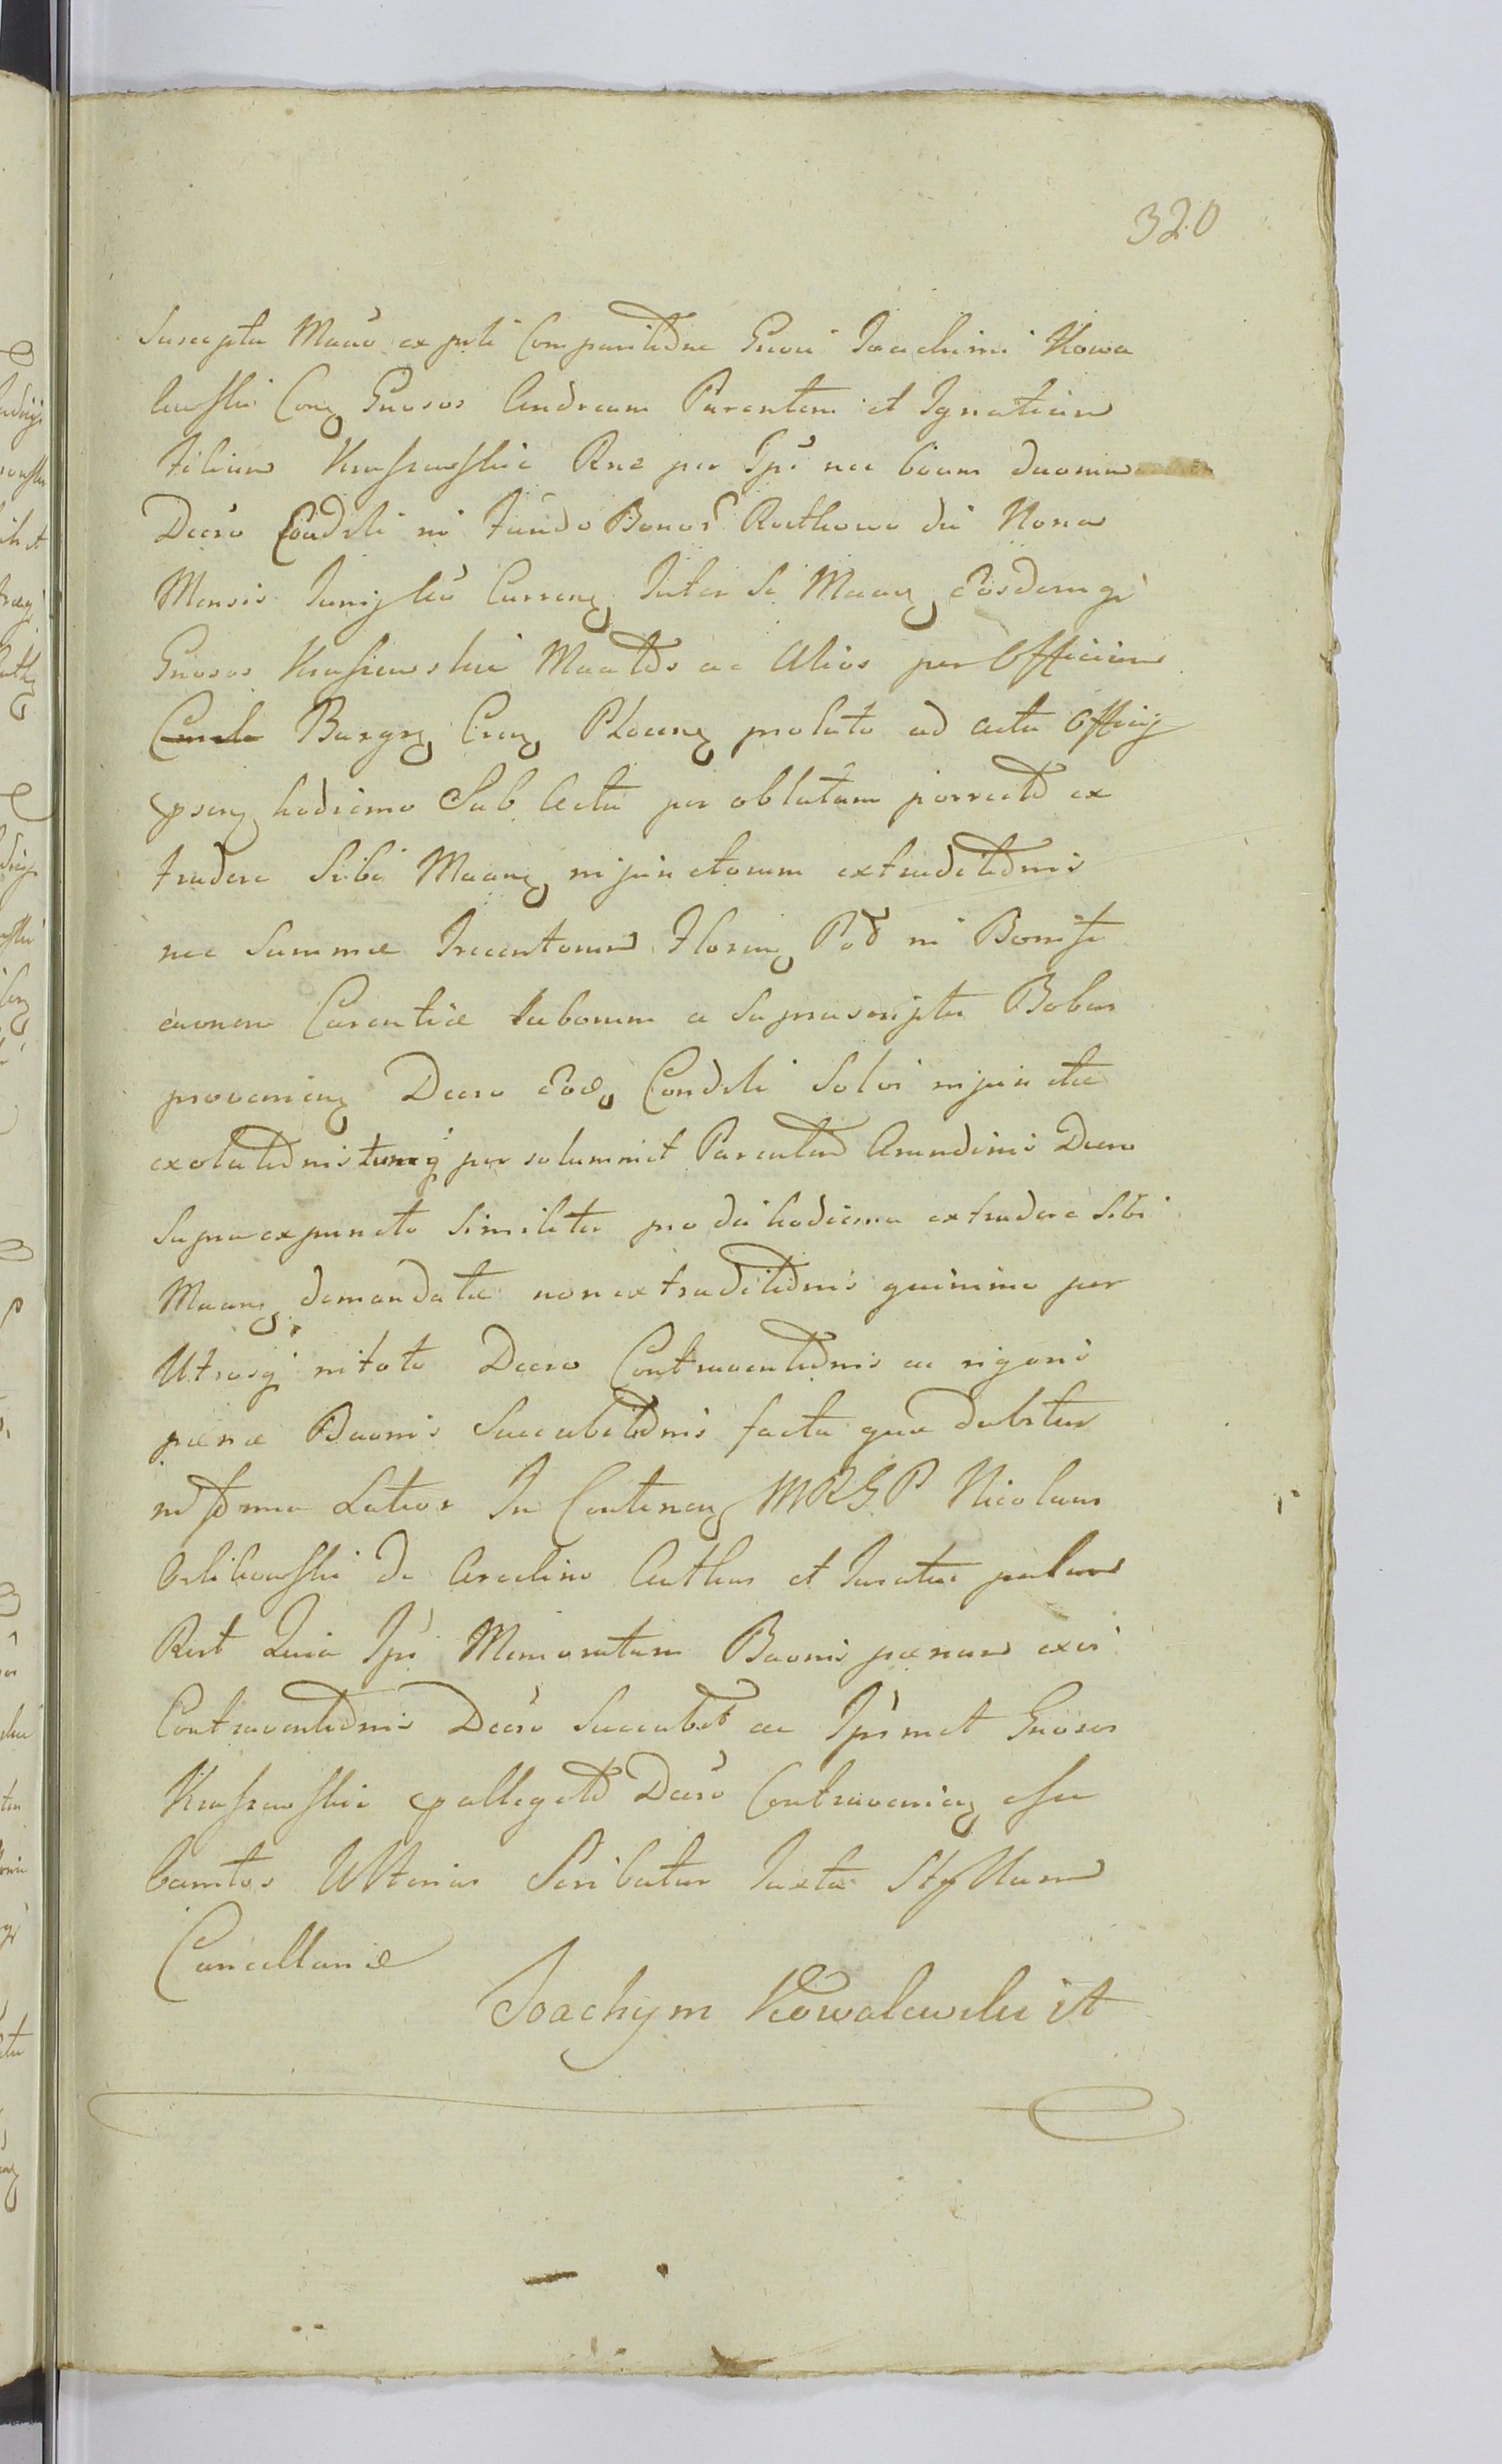 320
Suscepta Macao ex pnti Comparitione Gnosi Joachimi Kowa
lewski Conq Gnosos Andream Parentem et Ignatium
Filium Kraszewskie Rne per Ipś nec boum duorum
Decro Condsli in Fundo Bonor Rutkowo die Nona
Mensis Junij hcŏ Curreng Inter Se Maang Eosdemq
Gnosos Kraszewskie Maatos ac Alios per Officium
Burgrg Crzeng Ploceng prolato ad acta Officij
pseng hodierno Sub Actu per oblatam porrecto ex
tradere Sibi Maang injunctorum extraditionis
nec Summæ Trecentorum Floreng Pol in Bonifi
caonem Carentiæ laborum a Suprascriptis Bobus
provenieng Decro Eodg Condsli Solvi injunctæ
exolutionis tumq per solummet Parentem Arundinis Decro
Supra expuncto Similiter pro die hodierna extradere Sibi
Maang demandatæ non extraditionis quinimo per
Utrosq in toto Decro Contraventionis ac rigoris
pænæ Baonis Succubitionis facta qua dabitur
in forma Latior In Conteneng MRGP Nicolaus
Orlikowski de Arcelino Actkus et Juratus palam
Rert Quia Ipś Memoratam Baonis pænam exvi
Contraventionis Decro Succubit ac Ipśmet Gnosos
Kraszewskie pallegato Decro Contravenieng esse
bannitos Ulterius Scribatur Juxta Styllum
Cancellariæ
Joachym Kowalewski it